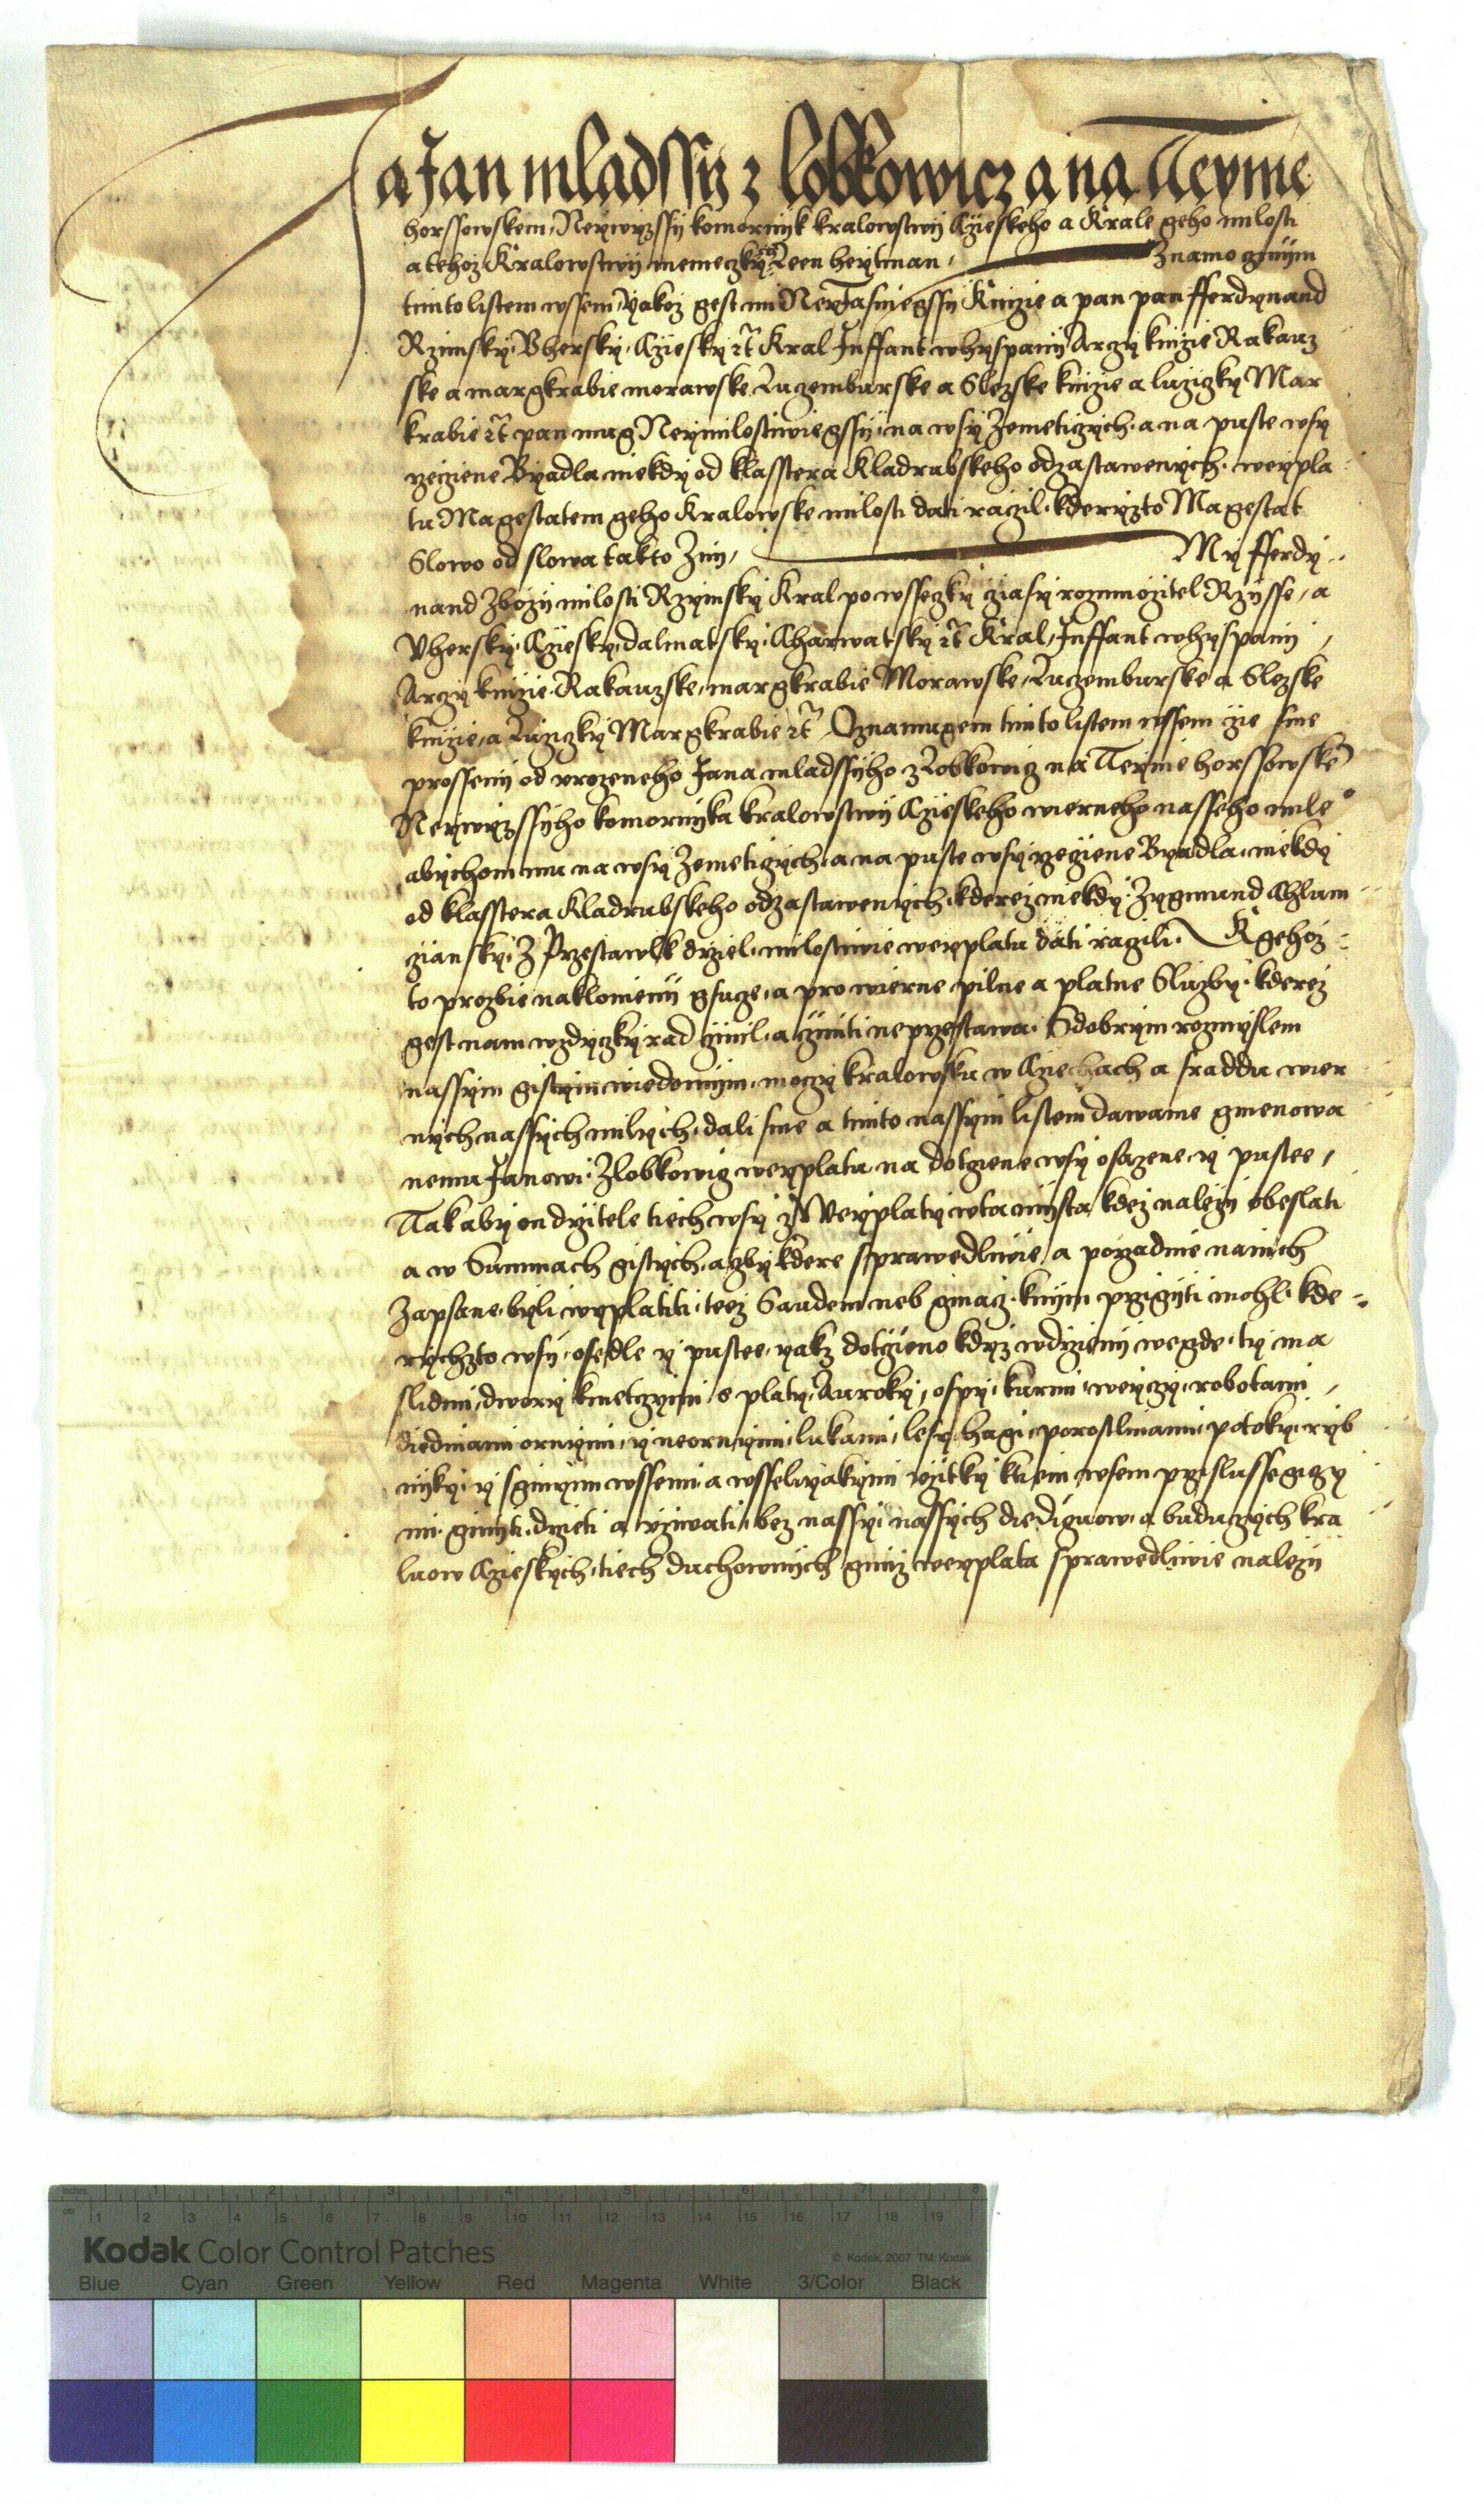 Ja Jan mladssij z lobkowicz a na Teyme
horssowskem, Neywyzssij komornyk kralowstwij Czieskeho a Krale geho milosti
a tehoz Kralowstwij nemeczkych Leen heytman, Znamo czinijm
timto listem wssem, yakoz gest mi Neyjasniegssij Knizie a pan pan fferdynand
Rzimsky, Vhersky, Cziesky etc Kral Jnffant whyspanij Arczy knizie Rakauz
ske a margkrabie morawske Luczemburske a Slezske knizie a luziczky Mar
krabie etc pan mug Neymilostiwiegssij, na wsy Zemeticzych, a na puste wsy
rzeczene Byadla niekdy od klasstera Kladrubskeho odzastawenych, weypla
tu Magestatem geho Kralowske milosti dati raczil, kderyzto Magestat
Slowo od slowa takto Znij, My fferdy
nand Zbozij milosti Rzymsky Kral po wsseczky cziasy rozmnozitel Rzijsse, a
Vhersky, Cziesky, dalmatsky, Charwatsky etc Kral, Jnffant whyspanij,
Arczy knizie Rakauzske, margkrabie Morawske, Luczemburske a Slezske
knizie, a Luziczky Margkrabie etc Oznamugem timto listem wssem zie sme
prosseni od vrozeneho Jana mladssyho z Lobkowicz na Teyme horssowske
Neywyzssyho komornyka kralowstwij Czieskeho wierneho nasseho mile
abychom mu na wsy Zemeticzych, a na puste wsy rzeczene Byadla, niekdy
od klasstera Kladrubskeho odzastawenych, kderez niekdy Zygmund Chlum
czansky Z Przestawlk drziel, milostiwie weyplatu dati raczili, K gehoz
to prozbie naklonieni gsucze, a pro wierne pilne a platne Sluzby, kderez
gest nam wzdyczky rad czinil, a czyniti neprzestawa, S dobrym rozmyslem
nassym gistym wiedomym, moczy kralowsku w Czechach a s raddu wier
nych nassych milych, dali sme a timto nassym listem dawame gmenowa
nemu Janowi Zlobkowicz weyplatu na dotczene wsy osazene y pustee,
Tak aby on drzitele tiech wsy z Weyplaty w ta mista kdez nalezy obeslati
a w Summach gistych, a zby kdere sprawedliwie, a porzadnie na nich
Zapsane, byli wyplatiti, teez Saudem neb ginacz, knym przigijti mohl, kde
rychzto wsy, osedle y pustee, yakz dotczieno kdyz w drzienij wegde, ty ma
s lidmi, dwory kmetczymi, s platy, Auroky, ospy, kurmi, weyczy, robotami,
diedinami ornymi, y neornymi, lukami, lesy, hagi, porostlinami, potoky, ryb
nyky, y sginymi wssemi, a wsselyakymi vzitky k tiem wsem przislussegiczy
mi, gmijti, drzeti a vziwati, bez nassy, nassych diediczuow, a buduczych kra
luow Czieskych, tiech duchownych gimz weyplata sprawedliwie nalezy
Kodak Color Control Patches
© Kodak, 2007 TM: Kodak
Blue Cyan Green Yellow Red Magenta White 3/Color Black